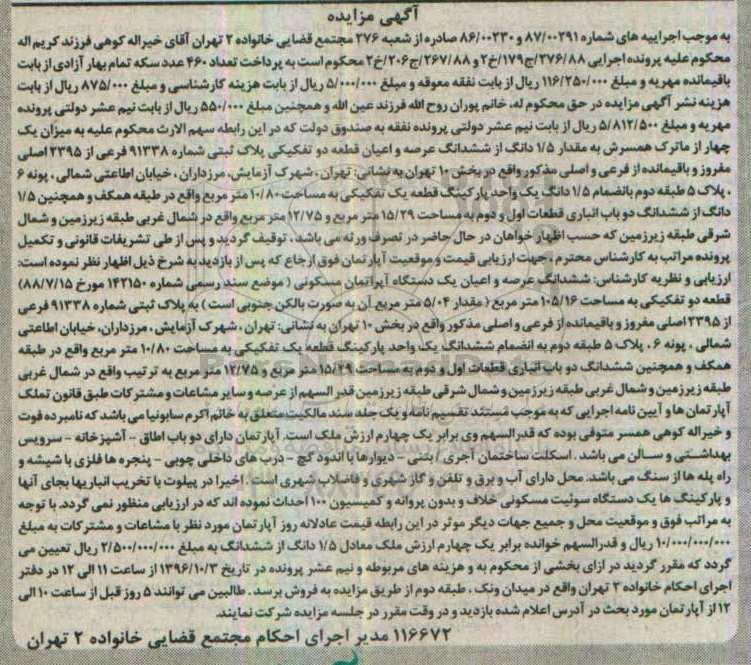 آگهی مزایده
به موجب اجراییه های شماره ۸۷/۰۰۲۹۱ و ۸۶/۰۰۲۳۰ صادره از شعبه ۲۷۶ مجتمع قضایی خانواده ۲ تهران آقای خیراله کوهی فرزند کریم اله
محکوم علیه پرونده اجرایی ۲۷۶/۸۸/ج۱۷۹/خ۲ و ۲۶۷/۸۸/ج۲۰۶/خ۲ محکوم است به پرداخت تعداد ۴۶۰ عدد سکه تمام بهار آزادی از بابت
باقیمانده مهریه و مبلغ ۱۱۶/۲۵۰/۰۰۰ ریال از بابت نفقه معوقه و مبلغ ۵/۰۰۰/۰۰۰ ریال از بابت هزینه کارشناسی و مبلغ ۸۷۵/۰۰۰ ریال از بابت
هزینه نشر آگهی مزایده در حق محکوم له، خانم پوران روح الله فرزند عین الله و همچنین مبلغ ۵۵۰/۰۰۰ ریال از بابت نیم عشر دولتی پرونده
مهریه و مبلغ ۵/۸۱۲/۵۰۰ ریال از بابت نیم عشر دولتی پرونده نفقه به صندوق دولت که در این رابطه سهم الارث محکوم علیه به میزان یک
چهار از ماترک همسرش به مقدار ۱/۵ دانگ از ششدانگ عرصه و اعیان قطعه دو تفکیکی پلاک ثبتی شماره ۹۱۳۳۸ فرعی از ۲۳۹۵ اصلی
مفروز و باقیمانده از فرعی و اصلی مذکور واقع در بخش ۱۰ تهران به نشانی: تهران ، شهرک آزمایش، مرزداران ، خیابان اطاعتی شمالی ، پونه ۶
، پلاک ۵ طبقه دوم بانضمام ۱/۵ دانگ یک واحد پارکینگ قطعه یک تفکیکی به مساحت ۱۰/۸۰ متر مربع واقع در طبقه همکف و همچنین ۱/۵
دانگ از ششدانگ دو باب انباری قطعات اول و دوم به مساحت ۱۵/۲۹ متر مربع و ۱۲/۷۵ متر مربع واقع در شمال غربی طبقه زیرزمین و شمال
شرقی طبقه زیرزمین که حسب اظهار خواهان در حال حاضر در تصرف ورثه می باشد ، توقیف گردید و پس از طی تشریفات قانونی و تکمیل
پرونده مراتب به کارشناس محترم ، جهت ارزیابی قیمت و موقعیت آپارتمان فوق ارجاع که پس از بازدید به شرح ذیل اظهار نظر نموده است:
ارزیابی و نظریه کارشناس: ششدانگ عرصه و اعیان یک دستگاه آپراتمان مسکونی ( موضع سند رسمی شماره ۱۴۲۱۵۰ مورخ ۸۸/۷/۱۵)
قطعه دو تفکیکی به مساحت ۱۰۵/۱۶ متر مربع ( مقدار ۵/۰۴ متر مربع آن به صورت بالکن جنوبی است ) به پلاک ثبتی شماره ۹۱۳۳۸ فرعی
از ۲۳۹۵ اصلی مفروز و باقیمانده از فرعی و اصلی مذکور واقع در بخش ۱۰ تهران به نشانی: تهران ، شهرک آزمایش ، مرزداران، خیابان اطاعتی
شمالی ، پونه ۶ ، پلاک ۵ طبقه دوم به انضمام ششدانگ یک واحد پارکینگ قطعه یک تفکیکی به مساحت ۱۰/۸۰ متر مربع واقع در طبقه
همکف و همچنین ششدانگ دو باب انباری قطعات اول و دوم به مساحت ۱۵/۲۹ متر مربع و ۱۲/۷۵ متر مربع به ترتیب واقع در شمال غربی
طبقه زیرزمین و شمال غربی طبقه زیرزمین و شمال شرقی طبقه زیرزمین قدر السهم از عرصه و سایر مشاعات و مشترکات طبق قانون تملک
آپارتمان ها و آیین نامه اجرایی که به موجب مستند تقسیم نامه و یک جلد سند مالکیت متعلق به خانم اکرم سابونیا می باشد که نامبرده فوت
و خیراله کوهی همسر متوفی بوده که قدرالسهم وی برابر یک چهارم ارزش ملک است. آپارتمان دارای دو باب اطاق - آشپزخانه - سرویس
بهداشتی و سالن می باشد . اسکلت ساختمان آجری / بتنی - دیوارها با اندود گچ - درب های داخلی چوبی - پنجره ها فلزی با شیشه و
راه پله ها از سنگ می باشد. محل دارای آب و برق و تلفن و گاز شهری و فاضلاب شهری است . اخیرا در پیلوت با تخریب انباریها بجای آنها
و پارکینگ ها یک دستگاه سوئیت مسکونی خلاف و بدون پروانه و کمیسیون ۱۰۰ احداث نموده اند که در ارزیابی منظور نمی گردد. با توجه
به مراتب فوق و موقعیت محل و جمیع جهات دیگر موثر در این رابطه قیمت عادلانه روز آپارتمان مورد نظر با مشاعات و مشترکات به مبلغ
۱۰/۰۰۰/۰۰۰/۰۰۰ ریال و قدرالسهم خوانده برابر یک چهارم ارزش ملک معادل ۱/۵ دانگ از ششدانگ به مبلغ ۲/۵۰۰/۰۰۰/۰۰۰ ریال تعیین می
گردد که مقرر گردید در ازای بخشی از محکوم به و هزینه های مربوطه و نیم عشر پرونده در تاریخ ۱۳۹۶/۱۰/۳ از ساعت ۱۱ الی ۱۲ در دفتر
اجرای احکام خانواده ۲ تهران واقع در میدان ونک ، طبقه دوم از طریق مزایده به فروش برسد . طالبین می توانند ۵ روز قبل از ساعت ۱۰ الی
۱۲ از آپارتمان مورد بحث در آدرس اعلام شده بازدید و در وقت مقرر در جلسه مزایده شرکت نمایند.
۱۱۶۶۷۲ مدیر اجرای احکام مجتمع قضایی خانواده ۲ تهران